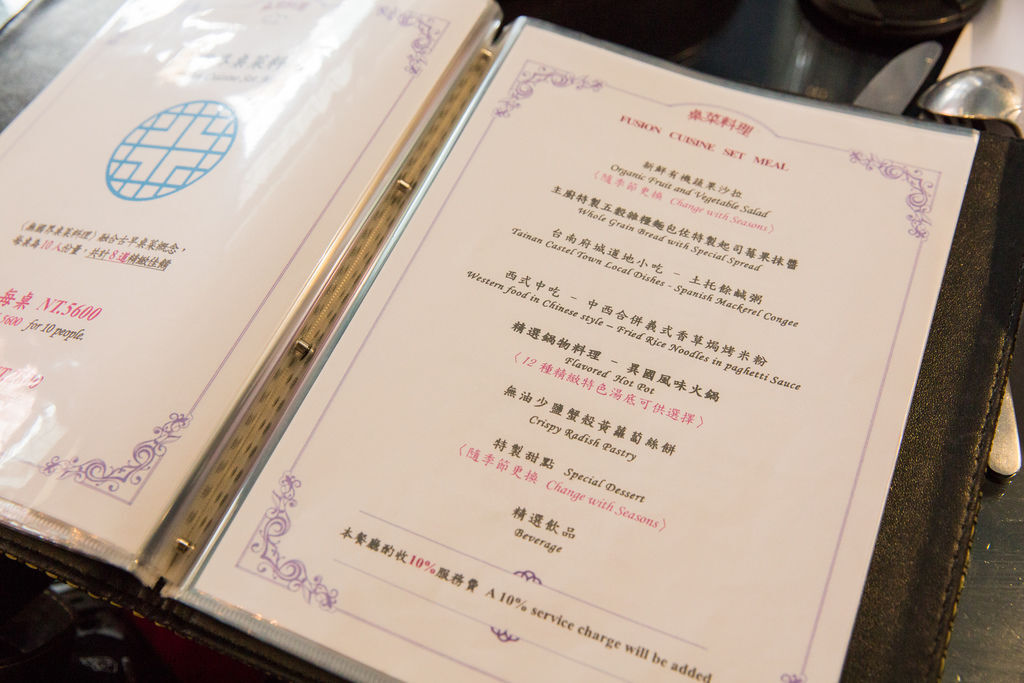 桌菜料理
《無國界桌菜料理》融合古早桌菜概念,
每桌為10人份量,共計8道精緻佳餚
每桌 NT.5600
5600 for 10 people.
桌菜料理
FUSION CUISINE SET MEAL
新鮮有機蔬果沙拉
Organic Fruit and Vegetable Salad
〈隨季節更換 Change with Seasons〉
主廚特製五穀雜糧麵包佐特製起司莓果抹醬
Whole Grain Bread with Special Spread
台南府城道地小吃 - 土托餘鹹粥
Tainan Castel Town Local Dishes - Spanish Mackerel Congee
西式中吃 - 中西合併義式香草焗烤米粉
Western food in Chinese style – Fried Rice Noodles in paghetti Sauce
精選鍋物料理 - 異國風味火鍋
Flavored Hot Pot
〈12 種精緻特色湯底可供選擇〉
無油少鹽蟹殼黃蘿蔔絲餅
Crispy Radish Pastry
特製甜點 Special Dessert
〈隨季節更換 Change with Seasons〉
精選飲品
Beverage
本餐廳酌收10%服務費 A 10% service charge will be added